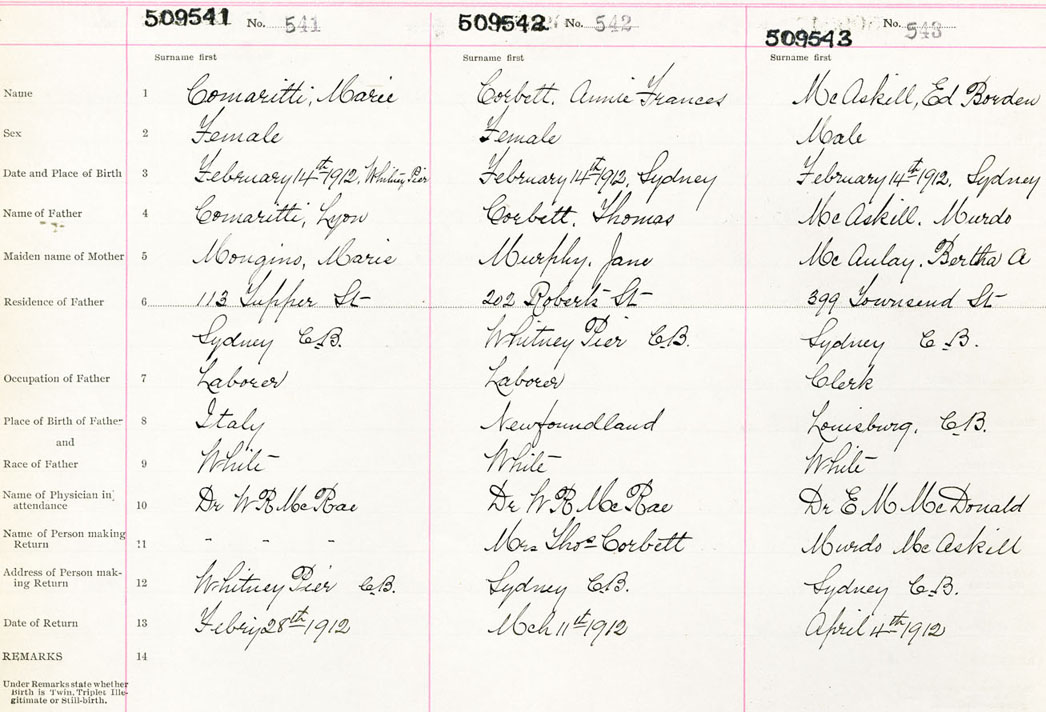 509541 No. 541 509542 No. 542 509543 No. 543
Surname first Surname first Surname first
Name 1 Comaritti, Marie Corbett, Annie Frances McAskill, Ed Borden
Sex 2 Female Female Male
Date and Place of Birth 3 February 14th 1912, Whitney Pier February 14th 1912, Sydney February 14th 1912, Sydney
Name of Father 4 Comaritti, Lyon Corbett, Thomas McAskill, Murdo
Maiden name of Mother 5 Mongino, Marie Murphy, Jane McAulay, Bertha A
Residence of Father 6 113 Tupper St 202 Roberts St 399 Townsend St
Sydney C.B. Whitney Pier C.B. Sydney C.B.
Occupation of Father 7 Laborer Laborer Clerk
Place of Birth of Father 8 Italy Newfoundland Louisburg, C.B.
and
Race of Father 9 White White White
Name of Physician in attendance 10 Dr W R McRae Dr W R McRae Dr E M McDonald
Name of Person making Return 11 - - - Mrs Thos Corbett Murdo McAskill
Address of Person making Return 12 Whitney Pier C.B. Sydney C.B. Sydney C.B.
Date of Return 13 Febry 28th 1912 Mch 11th 1912 April 4th 1912
REMARKS 14
Under Remarks state whether
Birth is Twin, Triplet Ille-
gitimate or Still-birth.